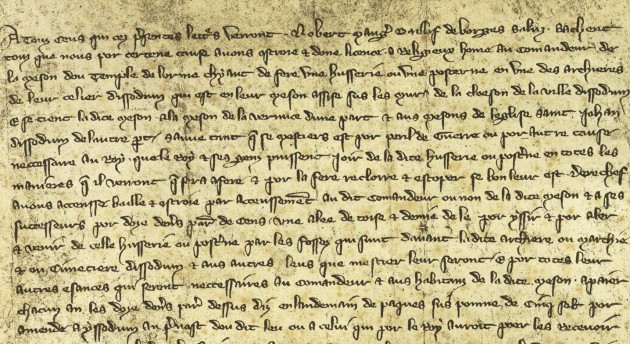 A touz ceus qui ces presentes lettres verront . Robert Maugier Baillif de Borges saluz . Sachent
touz que nous por certene cause avons otroie & done licence a Religieux home au Comandeur de
la meson dou Temple de lorme de fere une husserie ou une posterne en une des archieres
de leur celier dissodum qui est en leur meson assise sus les murs de la cloeson de la ville dissodum
& se tient la dite meson a la meson de la vernice dune part & aus mesons de leglise saint Johan
dissodum de lautre part . sauve tant que se mestiers est por peril de Guerre ou por autre cause
neccessaire au Roy . que le Roy & ses gens puissent joir de la dite husserie ou posterne en totes les
manieres que il verront que sera a fere & por la fere reclorre & estoper se bon leur est . derechef
avons accensse baille & otroie par accenssement au dit comandeur ou non de la dite meson & a ses
successeurs por doze deners par de cens . une alee de toise & demie de le por yssir & por aler
& venir de celle husserie ou posterne par les fossez qui sunt davant la dite archiere ou marchie
& ou Cimetiere dissodum & aus autres leus que mestier leur seront & por totes leur
autres esances qui seront neccessaires au comandeur & aus habitanz de la dite meson . a paier
chacun an les doze deners par dessus diz en landemain de pasques sus poinne de Cinq sols por
amende a yssodum au prevost dou dit leu ou a celui qui por le Roy auroit poer les recevoir